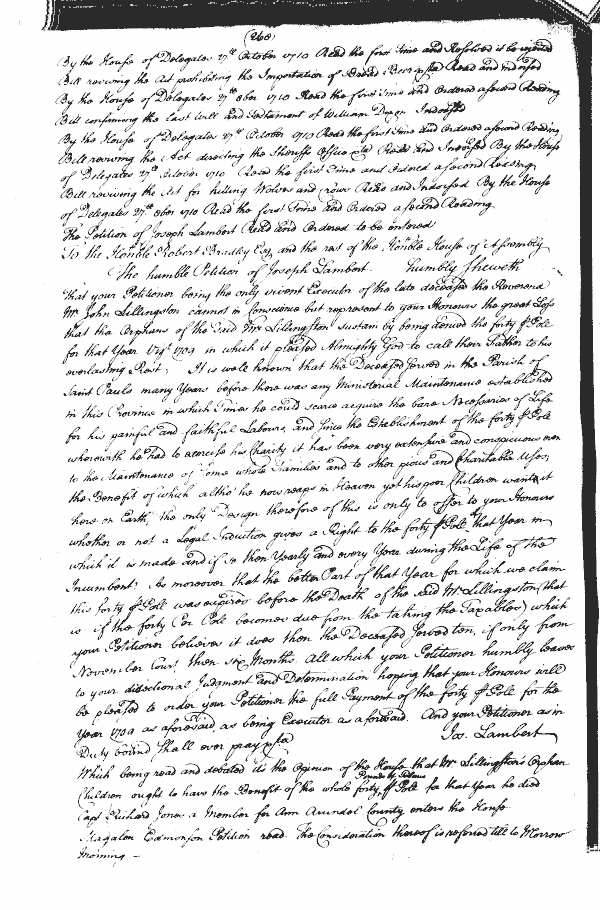 (268)
By the House of Delegates 27th October 1710 Read the first Time and Resolved it be rejected
Bill reviving the Act prohibiting the Importation of Bread Beer &c Read and indorsed
By the House of Delegates 27th 8ber 1710 Read the first Time and Ordered a second Reading
Bill confirming the Last Will and Testament of William Indorsed
By the House of Delegates 27th October 1710 Read the first Time and Ordered a second Reading
Bill reviving the Act directing the Sheriffs Office &c Read and Indorsed By the House
of Delegates 27th October 1710 Read the first Time and Ordered a second Reading
Bill reviving the Act for killing Wolves and Crows Read and Indorsed By the House
of Delegates 27th 8ber 1710 Read the first Time and Ordered a second Reading
The Petition of Joseph Lambert Read and Ordered to be entered
To the Honble Robert Bradley Esq and the rest of the Honble House of Assembly
The humble Petition of Joseph Lambert Humbly Sheweth
that your Petitioner being the only vivent Executor of the late deceased the Reverend
Mr John Lillingston cannot in Conscience but represent to your Honours the great Loss
that the Orphans of the said Mr Lillingston sustain by being denied the forty p Pole
for that Year Vizt 1709 in which it pleased Almighty God to call their Father to his
everlasting Rest. It is well known that the Deceased served in the Parish of
Saint Pauls many Years before there was any Ministerial Maintenance established
in this Province in which Times he could scarce acquire the bare Necessaries of Life
for his painful and faithful Labours, and since the Establishment of the forty p Pole
wherewith he had to exercise his Charity it has been very extensive and conspicuous even
to the Maintenance of some whole Families and to other pious and Charitable Uses,
the Benefit of which altho' he now reaps in Heaven yet his poor Children want it
here on Earth, the only Design therefore of this is only to offer to your Honours
whether or not a Legal Induction gives a Right to the forty p Pole that Year in
which it is made and if so then Yearly and every Year during the Life of the
Incumbent? As moreover that the better Part of that Year for which we claim
this forty p Pole was expired before the Death of the said Mr Lillingston (that
is if the forty Per Pole becomes due from the taking the Taxables) which
your Petitioner believes it does then the Deceased served ten, if only from
November Court then six Months. All which your Petitioner humbly leaves
to your Judgment and Determination hoping that your Honours will
be pleased to order your Petitioner the full Payment of the forty p Pole for the
Year 1709 as aforesaid, as being Executor as aforesaid. And your Petitioner as in
Duty bound shall ever pray &c Jos. Lambert
Which being read and debated its the Opinion of the House that Mr Lillingston's Orphan
Children ought to have the Benefit of the whole forty Pounds of Tobacco p Pole for that Year he died
Capt Richard Jones a Member for Ann Arundel County enters the House
Magalen Edmonson Petition read. The Consideration thereof is referred till to Morrow
Morning